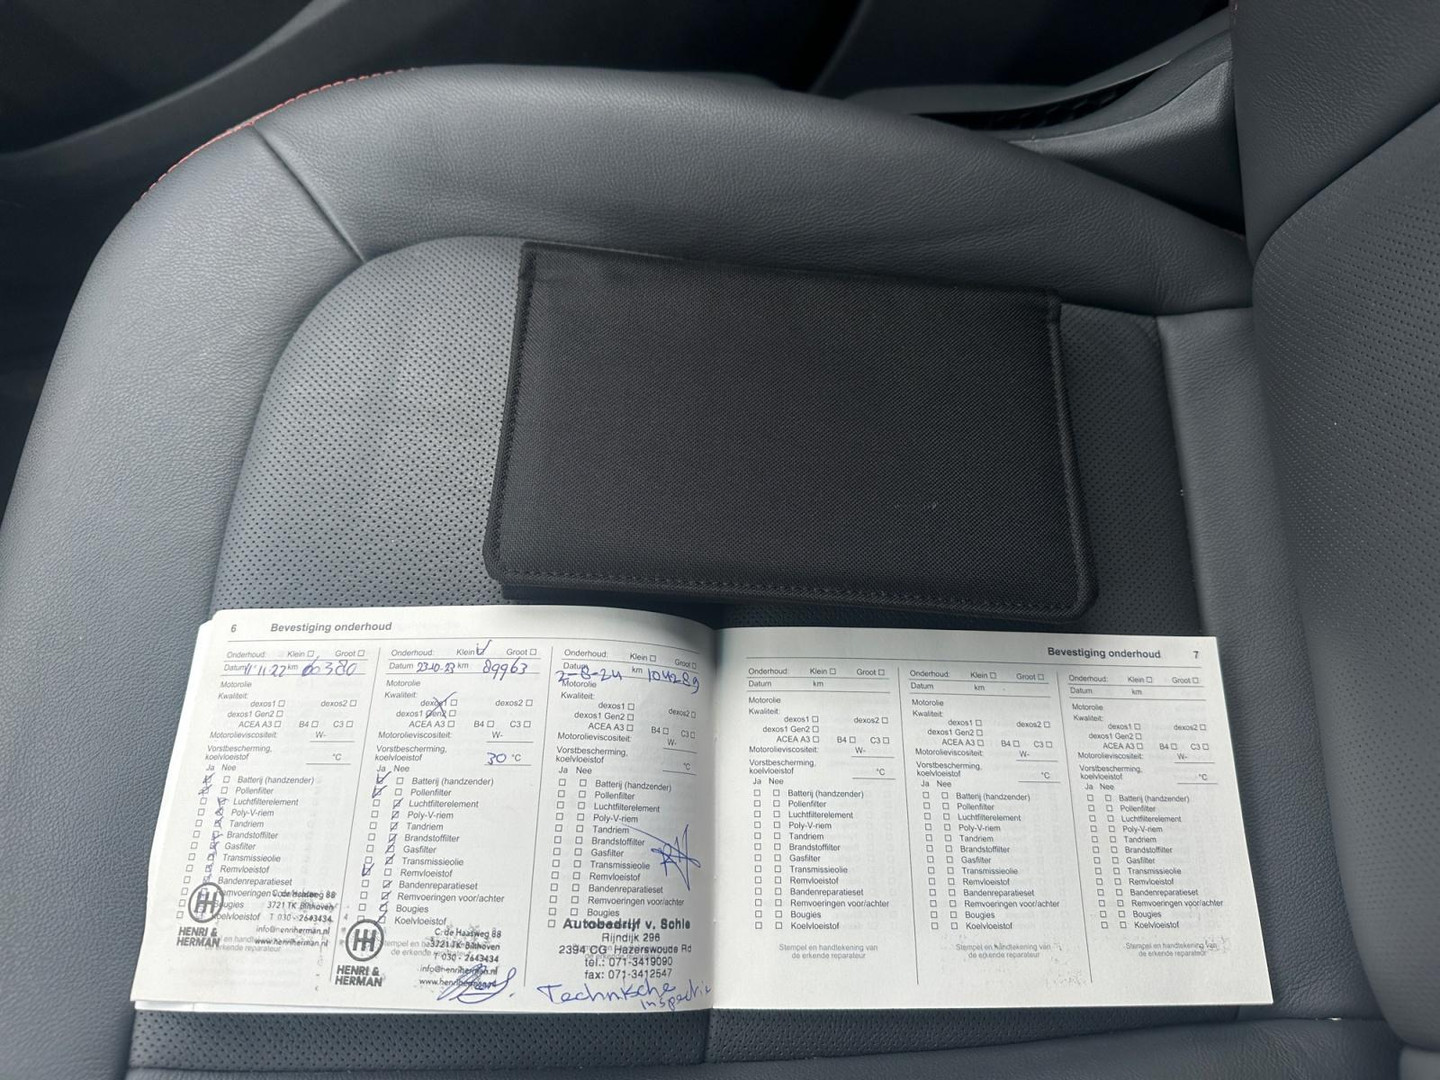 6 Bevestiging onderhoud
Onderhoud: Klein Groot
Datum 11'11.22 km 60380
Motorolie
Kwaliteit:
dexos1 dexos2
dexos1 Gen2
ACEA A3 B4 C3
Motorolieviscositeit: W-
Vorstbescherming,
koelvloeistof °C
Ja Nee
Batterij (handzender)
Pollenfilter
Luchtfilterelement
Poly-V-riem
Tandriem
Brandstoffilter
Gasfilter
Transmissieolie
Remvloeistof
Bandenreparatieset
Remvoeringen
Bougies
Koelvloeistof
HENRI &
HERMAN
C. de Haasweg 88
3721 TK Bilthoven
T 030 - 2643434
info@henriherman.nl
www.henriherman.nl
erkende reparateur
Onderhoud: Klein Groot
Datum 23-10-23 km 89963
Motorolie
Kwaliteit:
dexos1 dexos2
dexos1 Gen2
ACEA A3 B4 C3
Motorolieviscositeit: W-
Vorstbescherming,
koelvloeistof 30 °C
Ja Nee
Batterij (handzender)
Pollenfilter
Luchtfilterelement
Poly-V-riem
Tandriem
Brandstoffilter
Gasfilter
Transmissieolie
Remvloeistof
Bandenreparatieset
Remvoeringen voor/achter
Bougies
Koelvloeistof
HENRI &
HERMAN
C. de Haasweg 88
3721 TK Bilthoven
030 - 2643434
info@henriherman.nl
Onderhoud: Klein Groot
Datum 2-8-24 km 104289
Motorolie
Kwaliteit:
dexos1 dexos2
dexos1 Gen2
ACEA A3 B4 C3
Motorolieviscositeit: W-
Vorstbescherming,
koelvloeistof °C
Ja Nee
Batterij (handzender)
Pollenfilter
Luchtfilterelement
Poly-V-riem
Tandriem
Brandstoffilter
Gasfilter
Transmissieolie
Remvloeistof
Bandenreparatieset
Remvoeringen voor/achter
Bougies
Autobedrijf v. Schie
Rijndijk 296
2394 CG Hazerswoude Rd
tel.: 071-3419090
fax: 071-3412547
Technische
inspectie
Bevestiging onderhoud 7
Onderhoud: Klein Groot
Datum km
Motorolie
Kwaliteit:
dexos1 dexos2
dexos1 Gen2
ACEA A3 B4 C3
Motorolieviscositeit: W-
Vorstbescherming,
koelvloeistof °C
Ja Nee
Batterij (handzender)
Pollenfilter
Luchtfilterelement
Poly-V-riem
Tandriem
Brandstoffilter
Gasfilter
Transmissieolie
Remvloeistof
Bandenreparatieset
Remvoeringen voor/achter
Bougies
Koelvloeistof
Stempel en handtekening van
de erkende reparateur
Onderhoud: Klein Groot
Datum km
Motorolie
Kwaliteit:
dexos1 dexos2
dexos1 Gen2
ACEA A3 B4 C3
Motorolieviscositeit: W-
Vorstbescherming,
koelvloeistof °C
Ja Nee
Batterij (handzender)
Pollenfilter
Luchtfilterelement
Poly-V-riem
Tandriem
Brandstoffilter
Gasfilter
Transmissieolie
Remvloeistof
Bandenreparatieset
Remvoeringen voor/achter
Bougies
Koelvloeistof
Stempel en handtekening van
de erkende reparateur
Onderhoud: Klein Groot
Datum km
Motorolie
Kwaliteit:
dexos1 dexos2
dexos1 Gen2
ACEA A3 B4 C3
Motorolieviscositeit: W-
Vorstbescherming,
koelvloeistof °C
Ja Nee
Batterij (handzender)
Pollenfilter
Luchtfilterelement
Poly-V-riem
Tandriem
Brandstoffilter
Gasfilter
Transmissieolie
Remvloeistof
Bandenreparatieset
Remvoeringen voor/achter
Bougies
Koelvloeistof
Stempel en handtekening van
de erkende reparateur